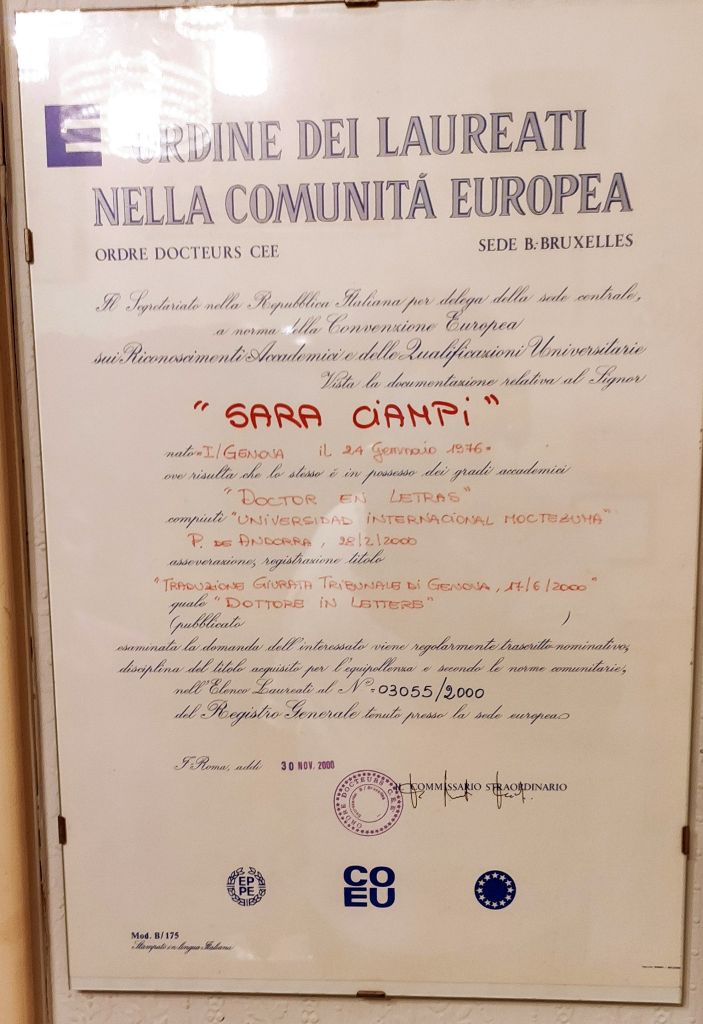 E
ORDINE DEI LAUREATI
NELLA COMUNITÁ EUROPEA
ORDRE DOCTEURS CEE SEDE B.-BRUXELLES
Il Segretariato nella Repubblica Italiana per delega della sede centrale,
a norma della Convenzione Europea
sui Riconoscimenti Accademici e delle Qualificazioni Universitarie
Vista la documentazione relativa al Signor
"SARA CIAMPI"
nato I/GENOVA il 24 Gennaio 1976
ove risulta che lo stesso è in possesso dei gradi accademici
"DOCTOR EN LETRAS"
compiuti "UNIVERSIDAD INTERNACIONAL MOCTEZUMA"
P. DE ANDORRA, 28/2/2000
asseverazione, registrazione titolo
"TRADUZIONE GIURATA TRIBUNALE DI GENOVA, 17/6/2000"
quale "DOTTORE IN LETTERE"
(pubblicato )
esaminata la domanda dell'interessato viene regolarmente trascritto nominativo,
disciplina del titolo acquisito per l'equipollenza e secondo le norme comunitarie,
nell'Elenco Laureati al N° 03055/2000
del Registro Generale tenuto presso la sede europea
I-Roma, addì 30 NOV. 2000
IL COMMISSARIO STRAORDINARIO
ORDRE DOCTEURS CEE
EP
PE
CO
EU
Mod. B/175
Stampato in lingua Italiana